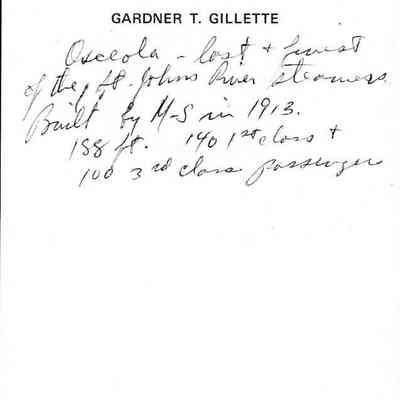 GARDNER T. GILLETTE
Osceola - last + finest
of the St. Johns River steamers.
Built by M-S in 1913.
188 ft. 140 1st class +
100 3rd class passengers